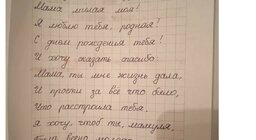 Мама милая моя!
Я люблю тебя, родная!
С днём рождения тебя!
И хочу сказать спасибо:
Мама, ты мне жизнь дала,
И прости за всё что было,
Что расстроила тебя,
Я хочу, чтоб ты, мамуля,